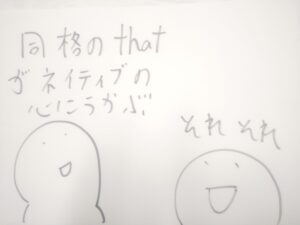 同格のthat
がネイティブの
心にうかぶ
それそれ